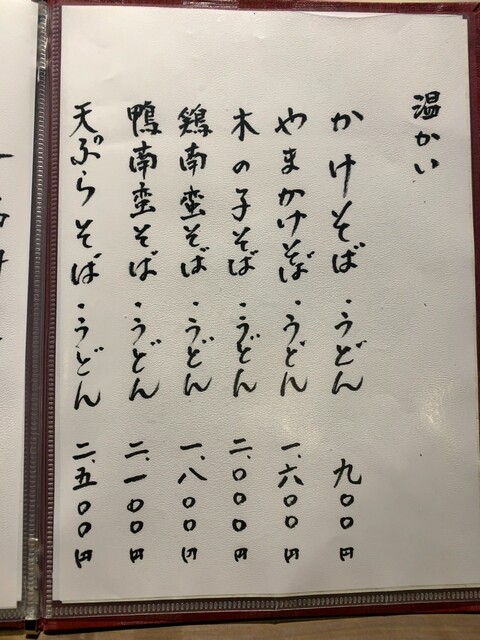 温かい
かけそば・うどん 九〇〇円
やまかけそば・うどん 一、六〇〇円
木の子そば・うどん 二、〇〇〇円
鶏南蛮そば・うどん 一、八〇〇円
鴨南蛮そば・うどん 二、一〇〇円
天ぷらそば・うどん 二、五〇〇円